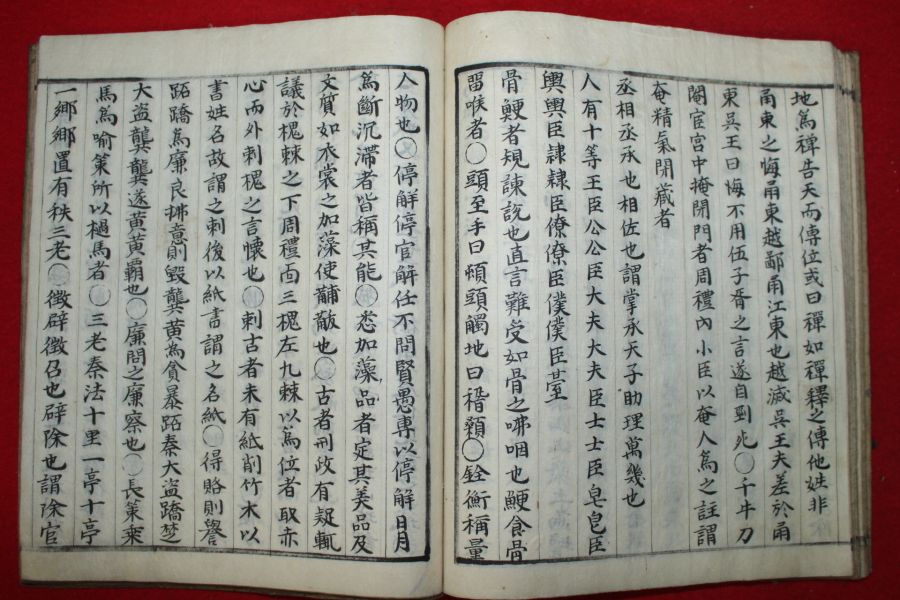 地爲禪告天而傳位或曰禪如禪釋之傳他姓非
甬東之悔甬東越鄮甬江東也越滅吳王夫差於甬
東吳王曰悔不用伍子胥之言遂自剄死〇千牛刀
閹宦宮中掩閉門者周禮內小臣以奄人爲之註謂
奄精氣閉藏者
丞相丞承也相佐也謂掌承天子助理萬幾也
人有十等王臣公公臣大夫大夫臣士士臣皁皁臣
輿輿臣隷隷臣僚僚臣僕僕臣㙜
骨鯁者規諫說也直言難受如骨之咈咽也鯁食骨
畱喉者〇頭至手曰頫頭觸地曰稽顙〇銓衡稱量
人物也〇停解停官解任不問賢愚專以停解日月
爲斷沉滯者皆稱其能〇悉加藻品者定其美品及
文質如衣裳之加藻使黼黻也〇古者刑政有疑輒
議於槐棘之下周禮面三槐左九棘以爲位者取亦
心而外刺槐之言懷也〇刺古者未有紙削竹木以
書姓名故謂之刺後以紙書謂之名紙〇得賂則譽
跖蹻爲廉良拂意則毀龔黃爲貪暴跖秦大盜蹻楚
大盜龔龔遂黃黃覇也〇廉問之廉察也〇長策乘
馬爲喻策所以檛馬者〇三老秦法十里一亭十亭
一鄉鄉置有秩三老〇徵辟徵召也辟除也謂除官